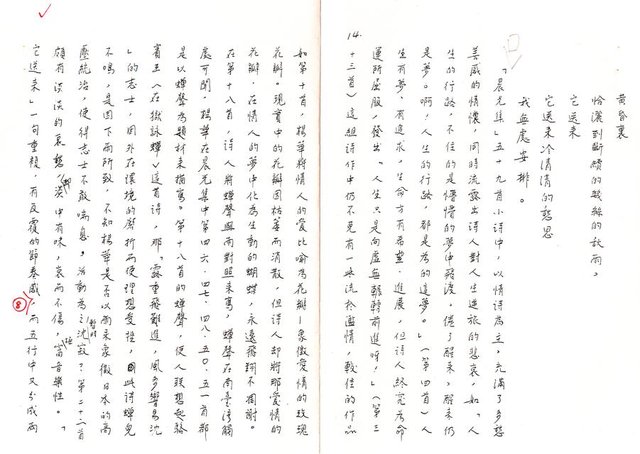 14.
黃昏裏
恰漏到斷續的幾絲的秋雨,
它送來
它送來冷清清的愁思
我無處安排。
「晨光集」五十九首小詩中,以情詩為主,充滿了多愁
善感的情懷,同時流露出詩人對人生遊旅的悲哀,如「人
生的行路,不住的是懵懵的夢中踏渡。倦了醒來,醒來仍
是夢。啊!人生的行路,都是為的這夢。」(第四首)人
生有夢、有追求,生命方有希望、進展,但詩人終究為命
運所屈服,發出「人生只是向虛無輾轉前進呀!」(第三
十三首)這組詩作中仍不免有一味流於濫情,較佳的作品
如第十首,楊華將情人的愛比喻為花瓣—象徵愛情的玫瑰
花瓣。現實中的花瓣固枯萎而消散,但詩人卻將那愛情的
花瓣,在情人的夢中化為生動的蝴蝶,永遠飛翔不凋謝。
在第十八首,詩人將蟬聲與雨對照來寫,蟬聲在南臺灣觸
處可聞,楊華在晨光集中第四六、四七、四八、五○、五一首都
是以蟬聲為題材來描寫。第十八首的蟬聲,使人聯想起駱
賓王(在獄詠蟬)這首詩,那「露重飛難進,風多響易沈
」的志士,因外在環境的磨折而使理想受挫,因此詩蟬兒
不鳴,是因下雨所致,不知楊華是否以雨來象徵日本的高
壓統治,使得志士不敢喘息,活動為之暫時沈寂?第二十二首
頗有淡淡的哀愁,卻淡中有味,哀而不傷,極富音樂性。「
它送來」一句重複,有反覆的節奏感,而五行中又分成兩
8